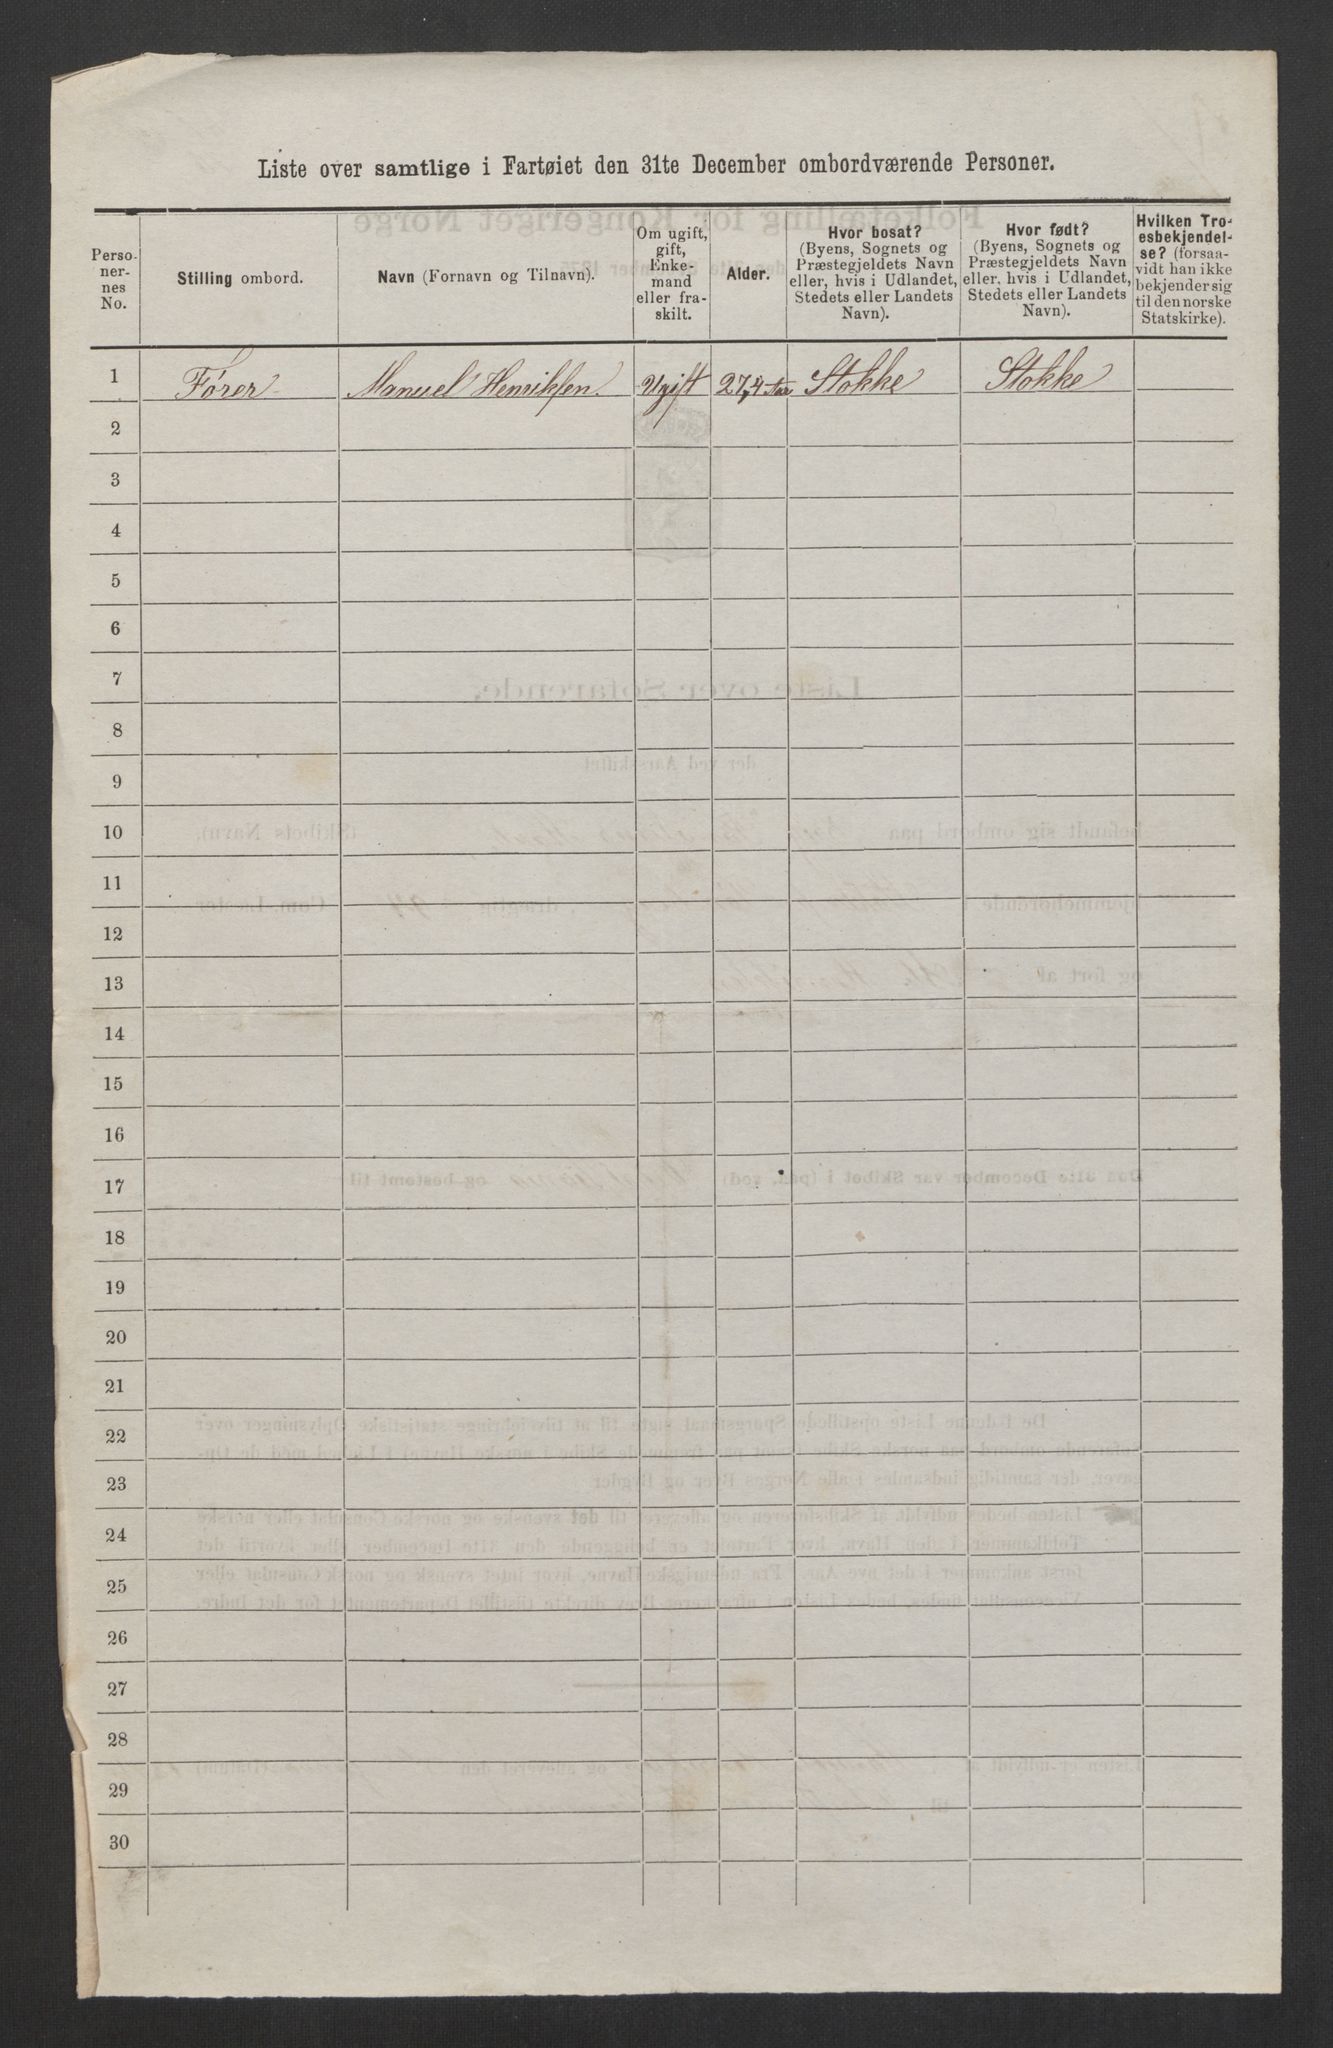 Liste over samtlige i Fartøiet den 31te December ombordværende Personer.
Perso-
ner-
nes
No.
Stilling ombord.
Navn (Fornavn og Tilnavn).
Om ugift,
gift,
Enke-
mand
eller fra-
skilt.
Alder.
Hvor bosat?
(Byens, Sognets og
Præstegjeldets Navn
eller, hvis i Udlandet,
Stedets eller Landets
Navn).
Hvor født?
(Byens, Sognets og
Præstegjeldets Navn
eller, hvis i Udlandet,
Stedets eller Landets
Navn).
Hvilken Tro-
esbekjendel-
se? (forsaa-
vidt han ikke
bekjender sig
til den norske
Statskirke).
1 Fører Manuel Henriksen. Ugift 27,4 Aar Stokke Stokke
2
3
4
5
6
7
8
9
10
11
12
13
14
15
16
17
18
19
20
21
22
23
24
25
26
27
28
29
30